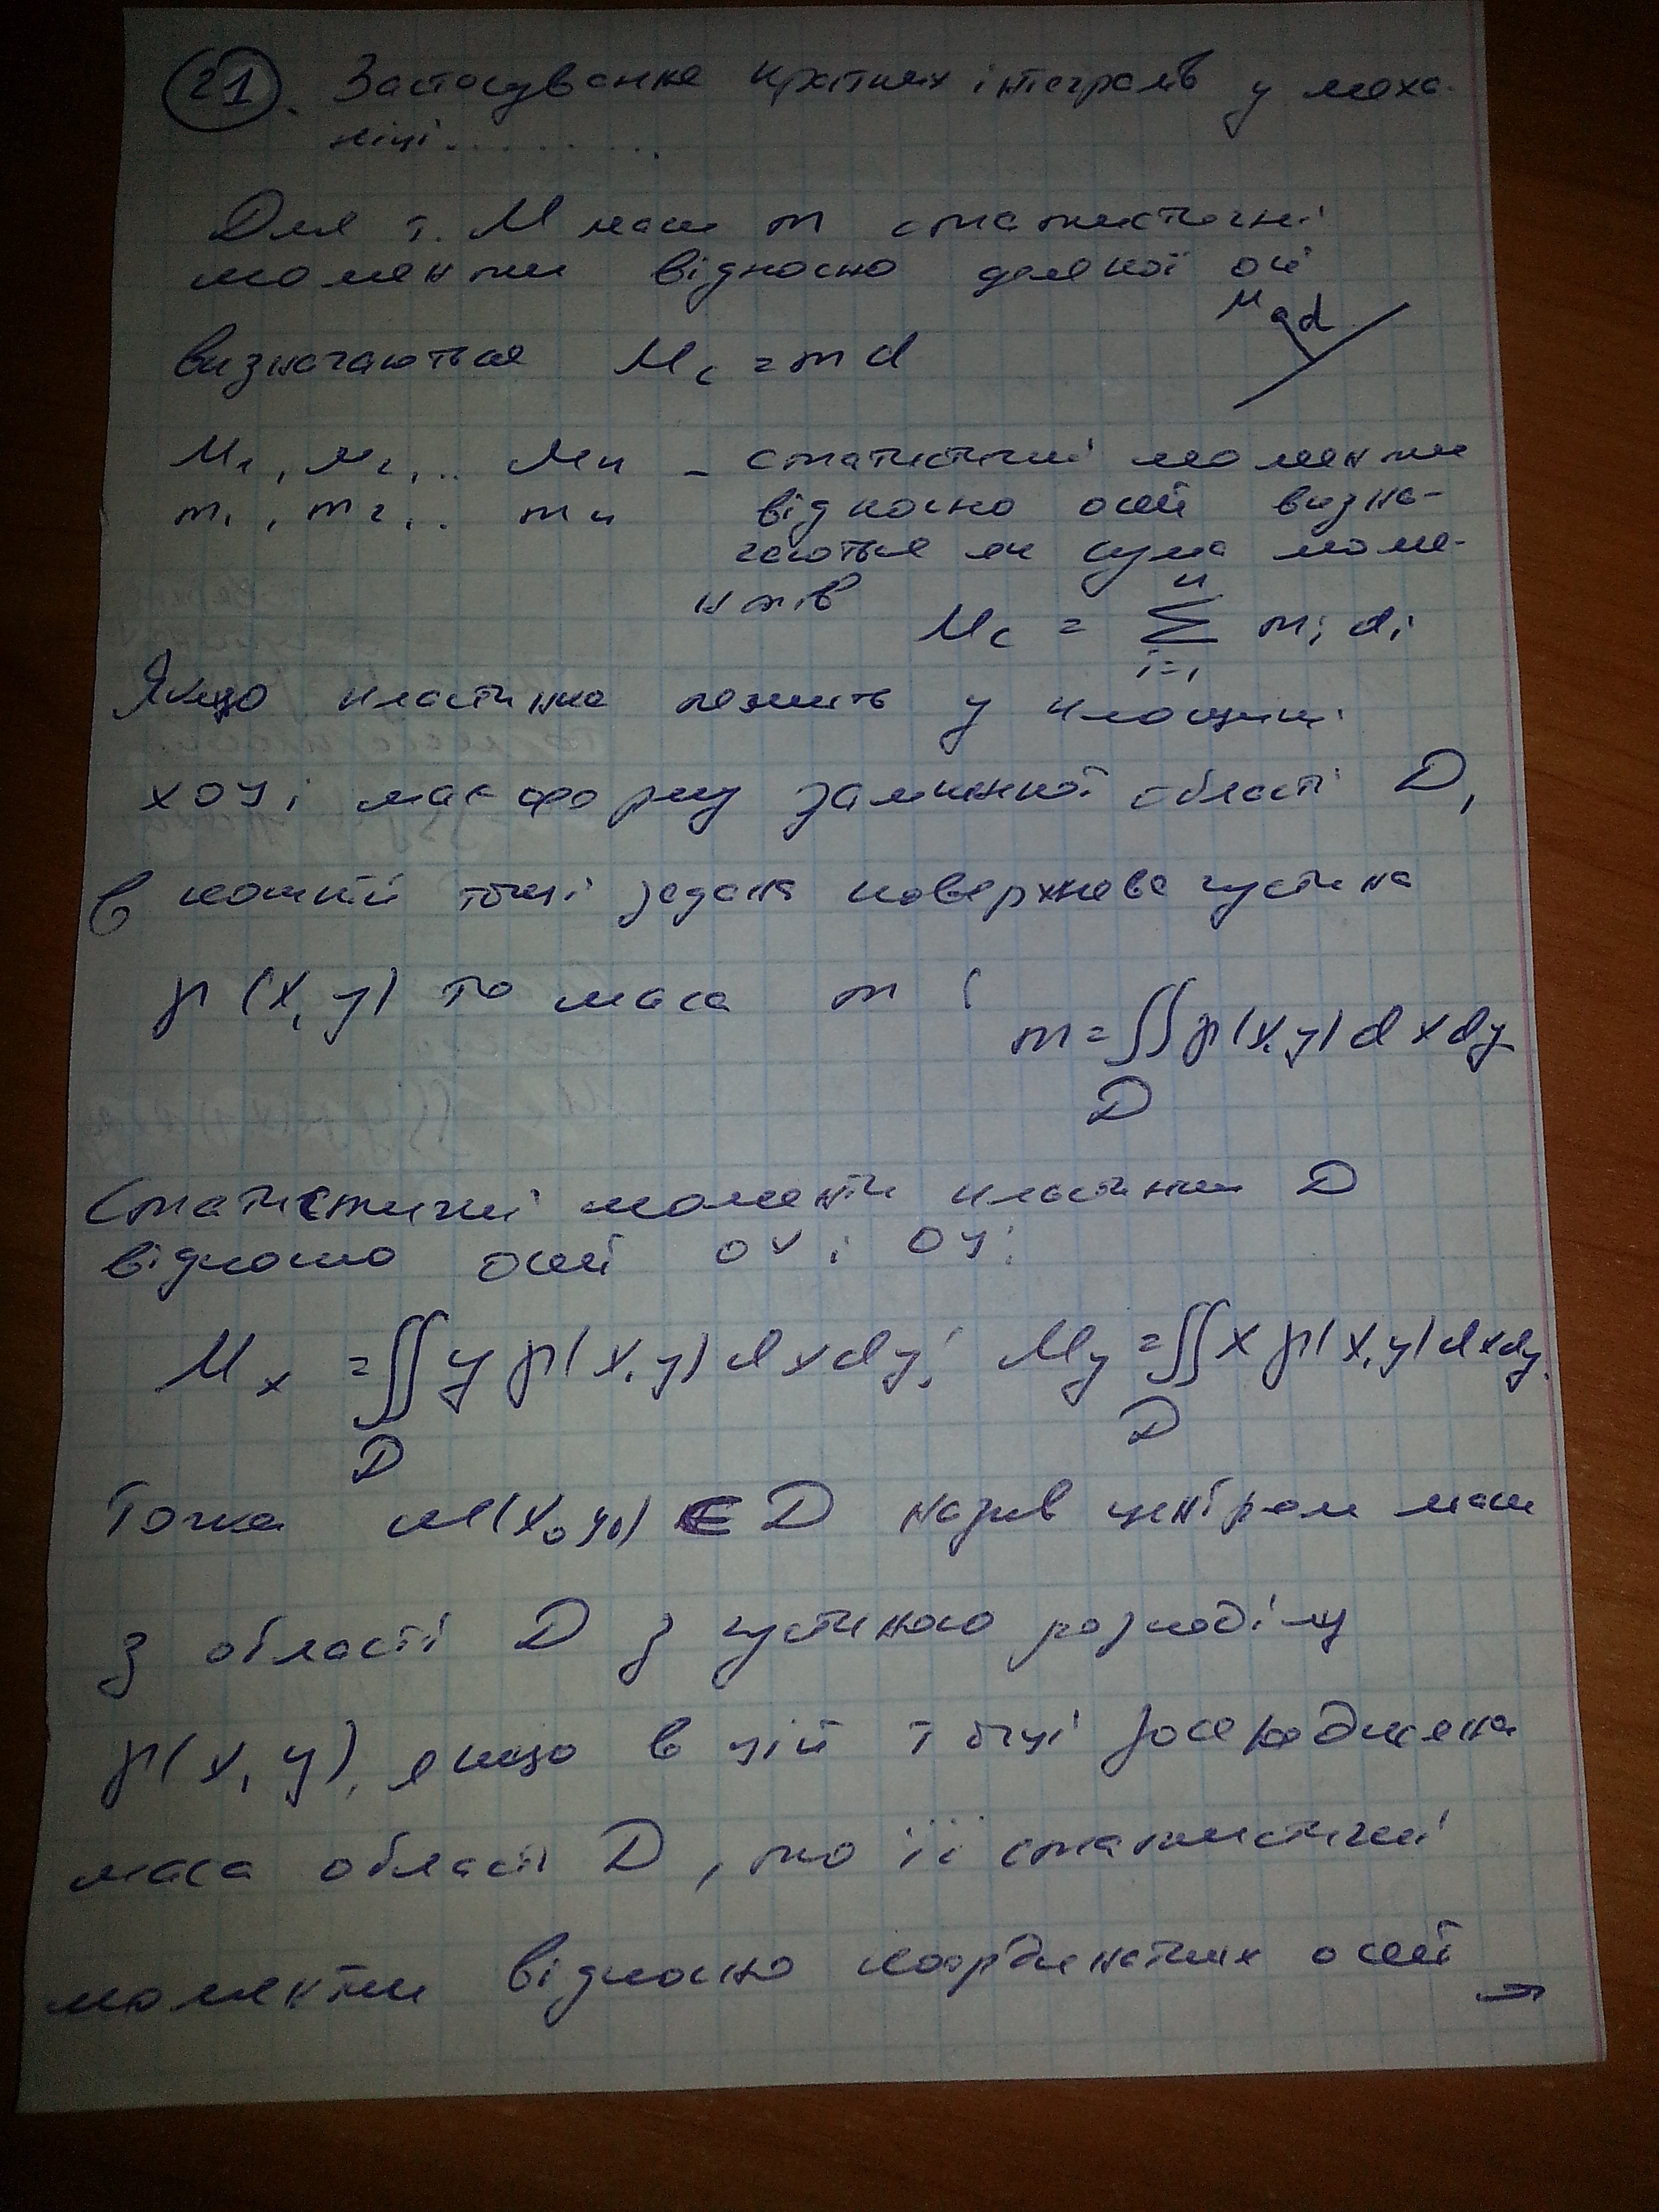 21. Застосування кратних інтегралів у меха-
ніці.........
Для т. M маси m статистичні
моменти відносно деякої осі
M d
визначаються Mc = md
M1, M2, .. Mn - статистичні моменти
m1, m2, .. mn відносно осей визна-
чаються як сума моме-
нтів
Mc = n Σ i=1 mi di
Якщо пластинка лежить у площині
xoy і має форму замкненої області D,
в кожній точці задана поверхнева густина
p(x,y) то маса m :
m = ∬ p(x,y) dxdy
D
Статистичні моменти пластини D
відносно осей ox і oy:
Mx = ∬ y p(x,y) dxdy; My = ∬ x p(x,y) dxdy.
D D
Точка M(x0 y0) ∈ D назив центром маси
з області D з густиною розподілу
p(x, y), якщо в цій точці зосереджена
маса області D, то її статистичні
моменти відносно координатних осей →